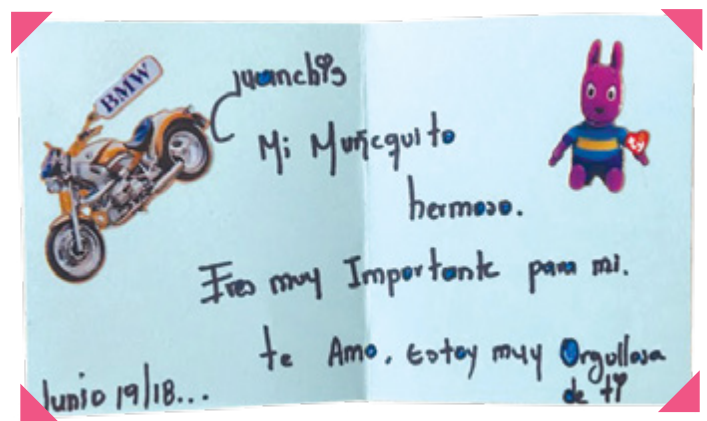 BMW
Juanchis
Mi Muñequito
hermoso.
ty
Eres muy Importante para mi.
te Amo. Estoy muy Orgullosa
de ti
Junio 19/18...